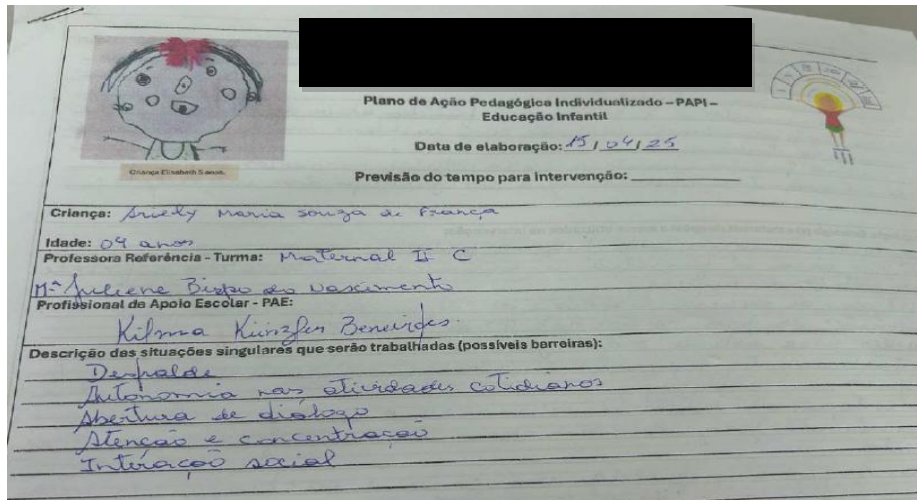 Plano de Ação Pedagógica Individualizado – PAPI –
Educação Infantil
Data de elaboração: 15 / 04 / 25
Previsão do tempo para intervenção: __________
Criança Elisabeth 5 anos.
Criança: Ariely Maria Souza de França
Idade: 04 anos
Professora Referência - Turma: Maternal II C
Mª Juliene Bispo do Nascimento
Profissional de Apoio Escolar - PAE:
Kilma
Descrição das situações singulares que serão trabalhadas (possíveis barreiras):
Desfralde
Autonomia nas atividades cotidianas
Abertura de diálogo
Atenção e concentração
Interação social